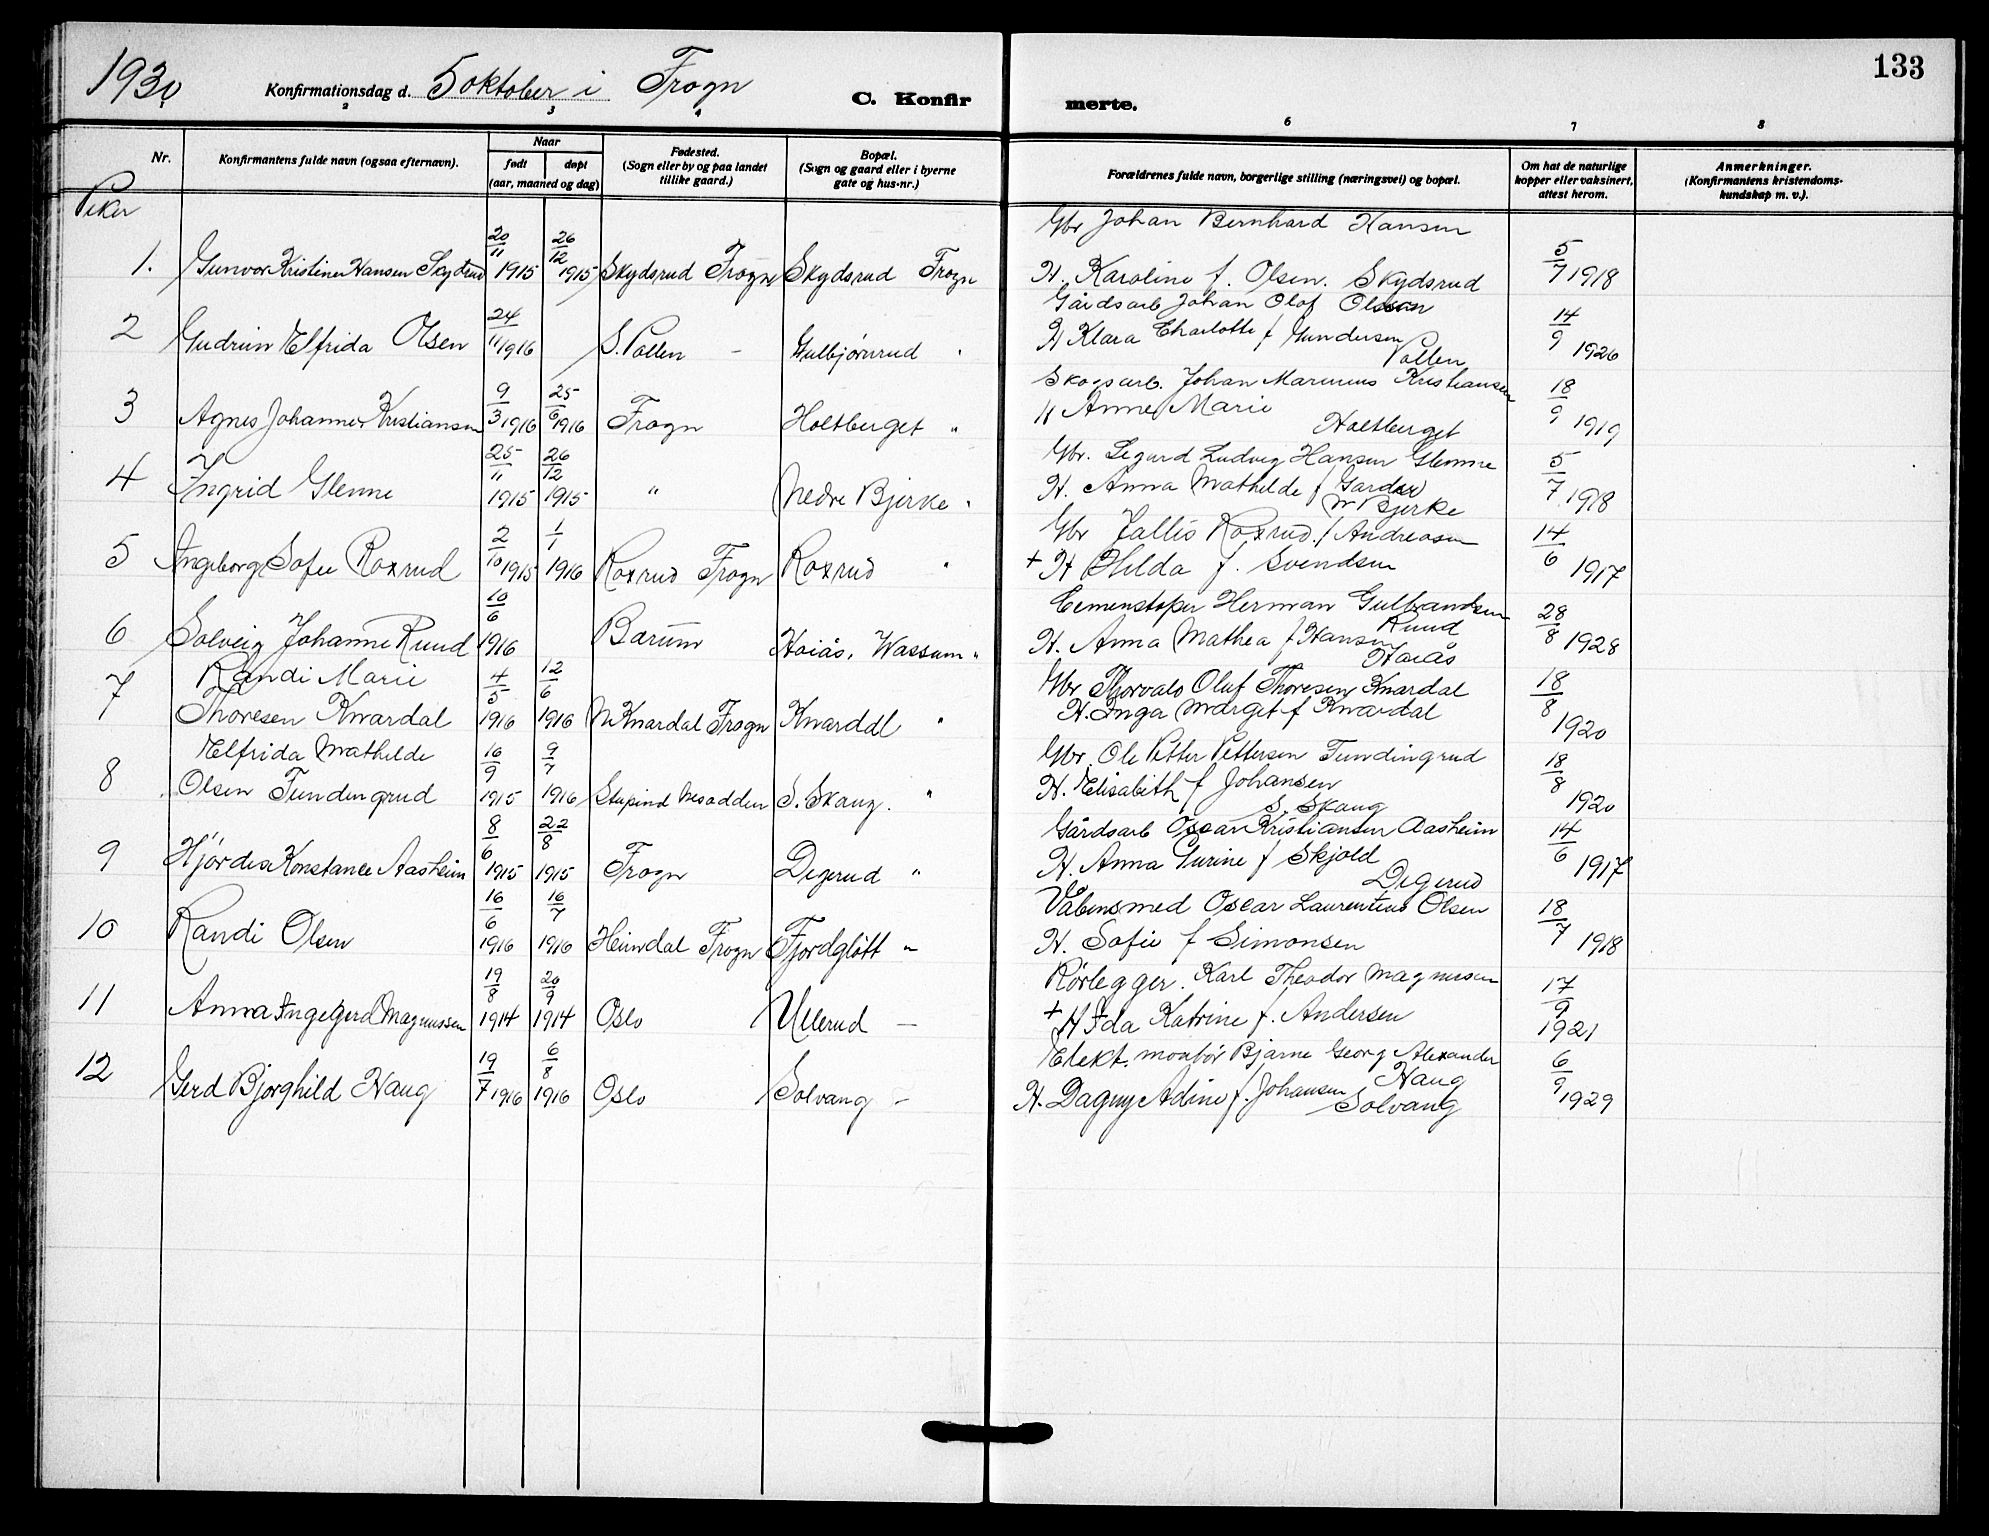 133
1930 Konfirmationsdag d. 5 oktober i Frogn C. Konfirmerte.
2 3 4 6 7 8
Nr. Konfirmantens fulde navn (ogsaa efternavn). Naar født døpt (aar, maaned og dag) Fødested. (Sogn eller by og paa landet tillike gaard.) Bopæl. (Sogn og gaard eller i byerne gate og hus-nr.) Forældrenes fulde navn, borgerlige stilling (næringsvei) og bopæl. Om hat de naturlige kopper eller vaksinert, attest herom. Anmerkninger. (Konfirmantens kristendoms-kundskap m. v.).
Piker
1. Gunvor Kristine Hansen Skydsrud 20/11 1915 26/12 1915 Skydsrud Frogn Skydsrud Frogn Gbr Johan Bernhard Hansen
H. Karoline f. Olsen. Skydsrud 5/7 1918
2 Gudrun Elfrida Olsen 24/11 1916 S. Pollen - Gulbjørnrud " Gårdsarb Johan Olof Olsson
H Klara Charlotte f Gundersen
Pollen 14/9 1920
3 Agnes Johanne Kristiansen 9/3 1916 25/6 1916 Frogn Holtberget " Skogsarb. Johan Marinius Kristiansen
H Anne Marie
Holtberget 18/9 1919
4 Ingrid Glenne 25/11 1915 26/12 1915 " Nedre Bjerke " Gbr. Sigurd Ludvig Hansen Glenne
H. Anna Mathilde f Garder
N Bjerke 5/7 1918
5 Ingeborg Sofie Roxrud 2/10 1915 1/1 1916 Roxrud Frogn Roxrud " Gbr Jallis Roxrud f Andreasen
+ H Hilda f. Svendsen 14/6 1917
6 Solveig Johanne Ruud 10/6 1916 Bærum Høiås, Wassum " Cementstøper Herman Gulbrandsen
Ruud
H. Anna Mathea f Hansen
Høiås 28/8 1928
7 Randi Marie
Thoresen Knardal 4/5 1916 12/6 1916 N Knardal Frogn Knardal " Gbr Thorvald Oluf Thoresen Knardal
H. Inga Marget f Knardal 18/8 1920
8 Elfrida Mathilde
Olsen Fundingrud 16/9 1915 9/7 1916 Stupind Nesodden S. Skaug. " Gbr. Ole Petter Pettersen Fundingrud
H. Elisabeth f Johansen
S. Skaug 18/8 1920
9 Hjørdis Konstance Aasheim 8/6 1915 22/8 1915 Frogn Degerud " Gårdsarb Oscar Kristiansen Aasheim
H. Anna Gurine f Skjold
Degerud 14/6 1917
10 Randi Olsen 16/6 1916 16/7 1916 Heimdal Frogn Fjordgløtt " Våbensmed Oscar Laurentius Olsen
H. Sofie f Simonsen 18/7 1918
11 Anna Ingegjerd Magnussen 19/8 1914 20/9 1914 Oslo Ullerud - Rørlegger. Karl Theodor Magnusen
+ H Ida Katrine f. Andersen 17/9 1921
12 Gerd Bjørghild Haug 19/7 1916 6/8 1916 Oslo Solvang - Elekt. montør Bjarne Georg Alexander
Haug
H. Dagny Adine f. Johansen
Solvang 6/9 1929